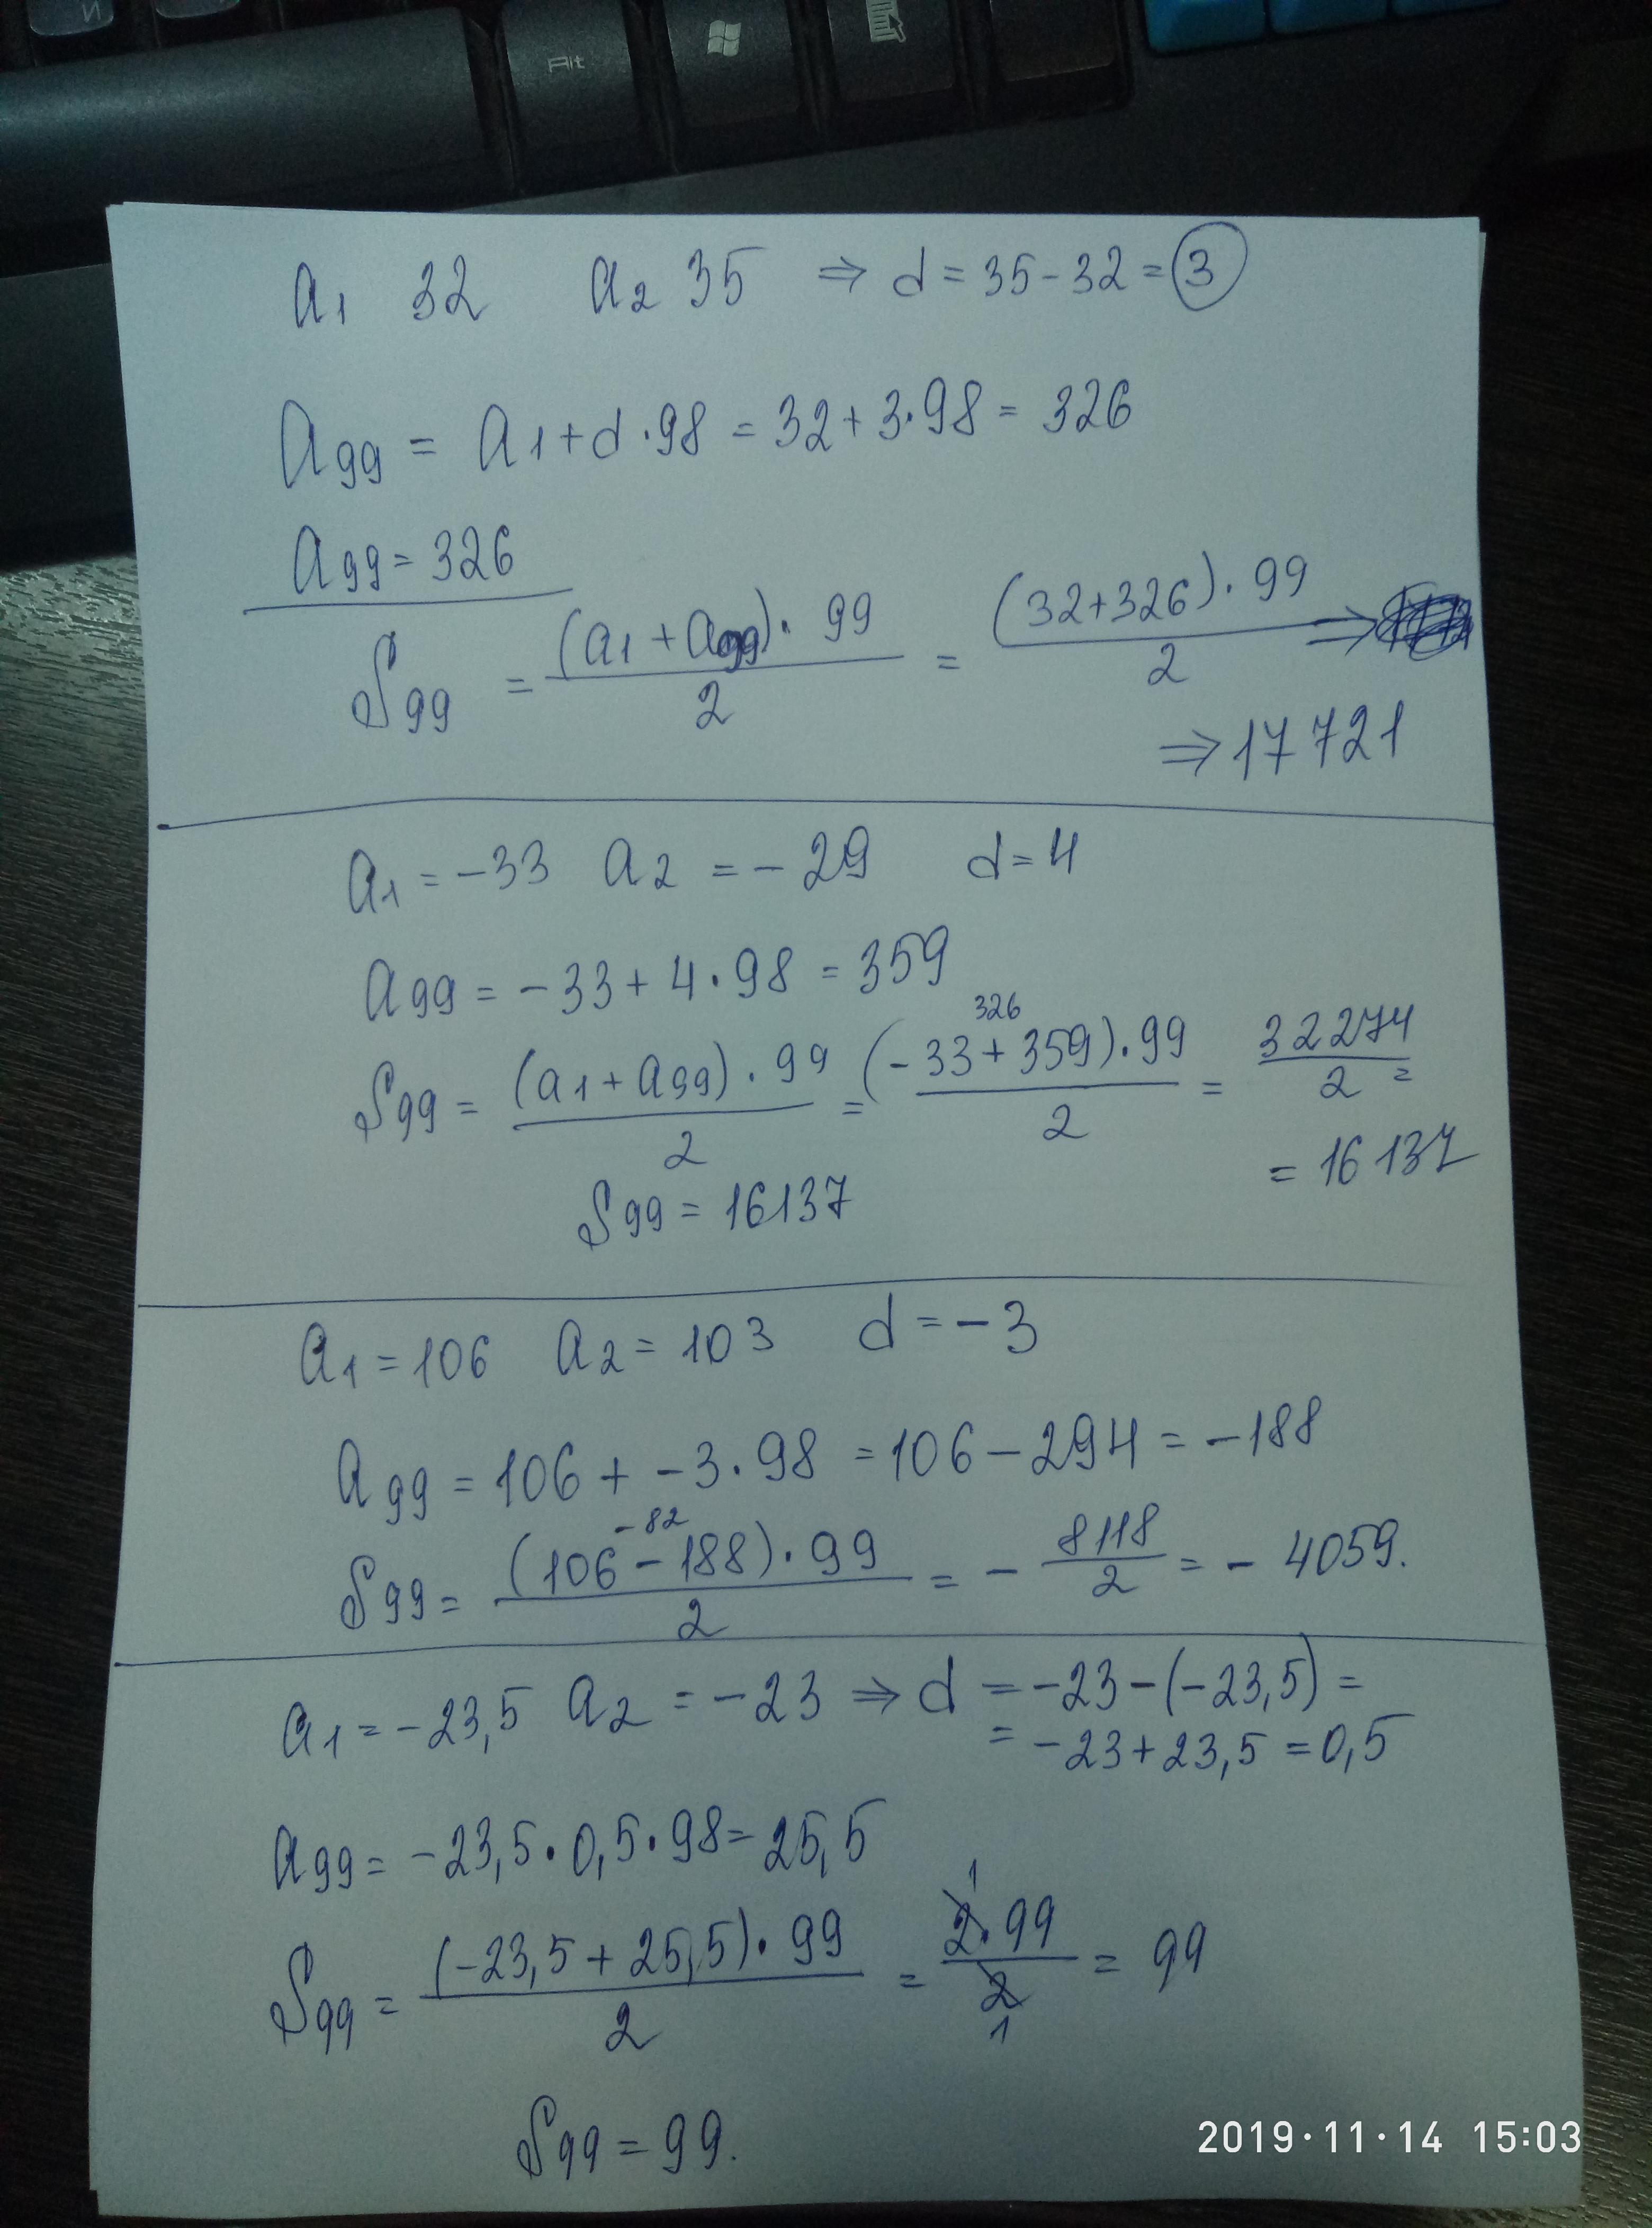 И
Alt
a₁ 32 a₂ 35 ⇒ d = 35 - 32 = 3
a₉₉ = a₁ + d · 98 = 32 + 3 · 98 = 326
a₉₉ = 326
S₉₉ = (a₁ + a₉₉) · 99 / 2 = (32 + 326) · 99 / 2 ⇒
⇒ 17 721
a₁ = -33 a₂ = -29 d = 4
a₉₉ = -33 + 4 · 98 = 359
326
S₉₉ = (a₁ + a₉₉) · 99 / 2 = (-33 + 359) · 99 / 2 = 32274 / 2 =
= 16 137
S₉₉ = 16137
a₁ = 106 a₂ = 103 d = -3
a₉₉ = 106 + -3 · 98 = 106 - 294 = -188
-82
S₉₉ = (106 - 188) · 99 / 2 = - 8118 / 2 = - 4059.
a₁ = -23,5 a₂ = -23 ⇒ d = -23 - (-23,5) =
= -23 + 23,5 = 0,5
a₉₉ = -23,5 · 0,5 · 98 = 25,5
1
S₉₉ = (-23,5 + 25,5) · 99 / 2 = 2 · 99 / 2 = 99
1
S₉₉ = 99.
2019·11·14 15:03